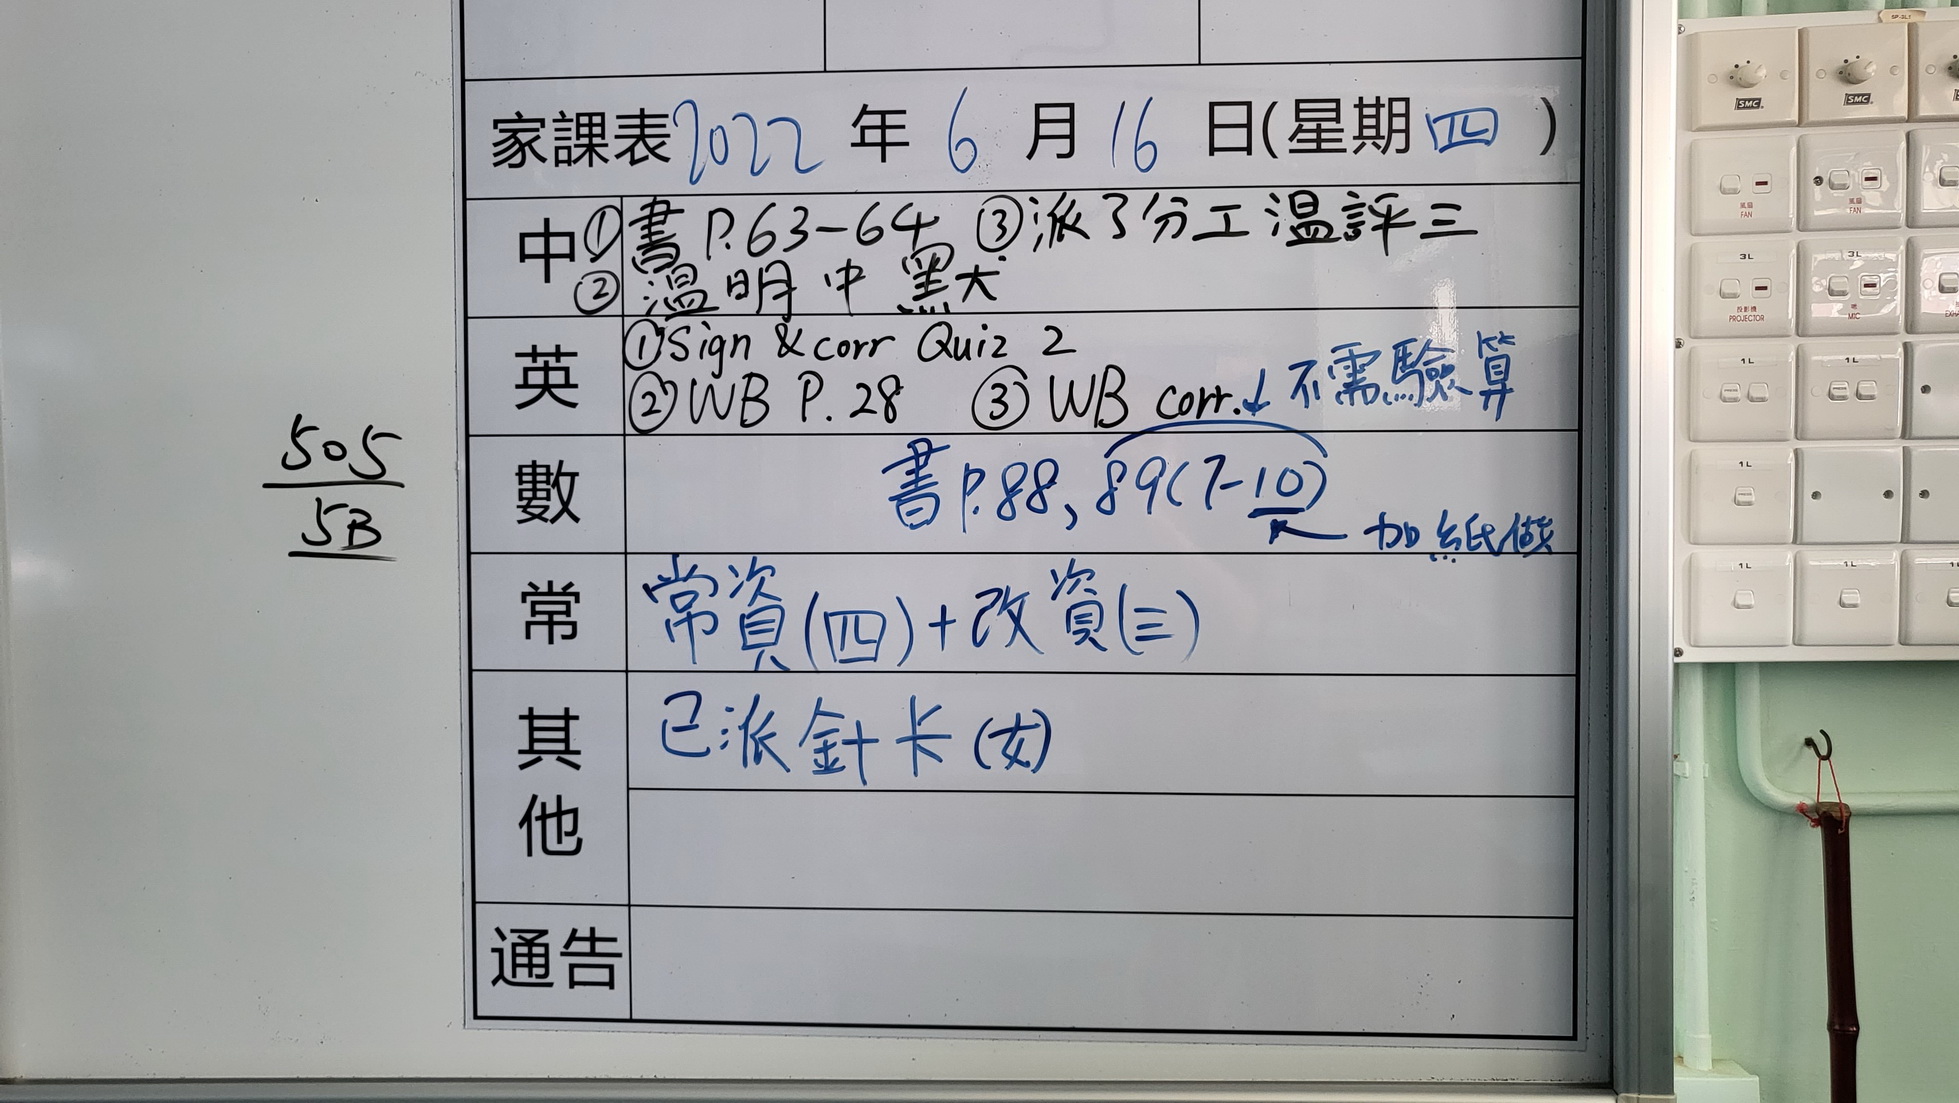 家課表 2022 年 6 月 16 日(星期四)
中 ①書 P.63-64 ③派了分工温評三
②温明中黑犬
英 ①Sign & corr Quiz 2
②WB P. 28 ③ WB corr. ↓不需驗算
數 書P.88, 89(7-10)
加紙做
常 常資(四)+改資(三)
其他 已派針卡(女)
通告
505
5B
SP-3L1
SMC SMC
風扇 FAN 風扇 FAN
3L 3L
投影機 PROJECTOR MIC
1L 1L
1L
1L 1L